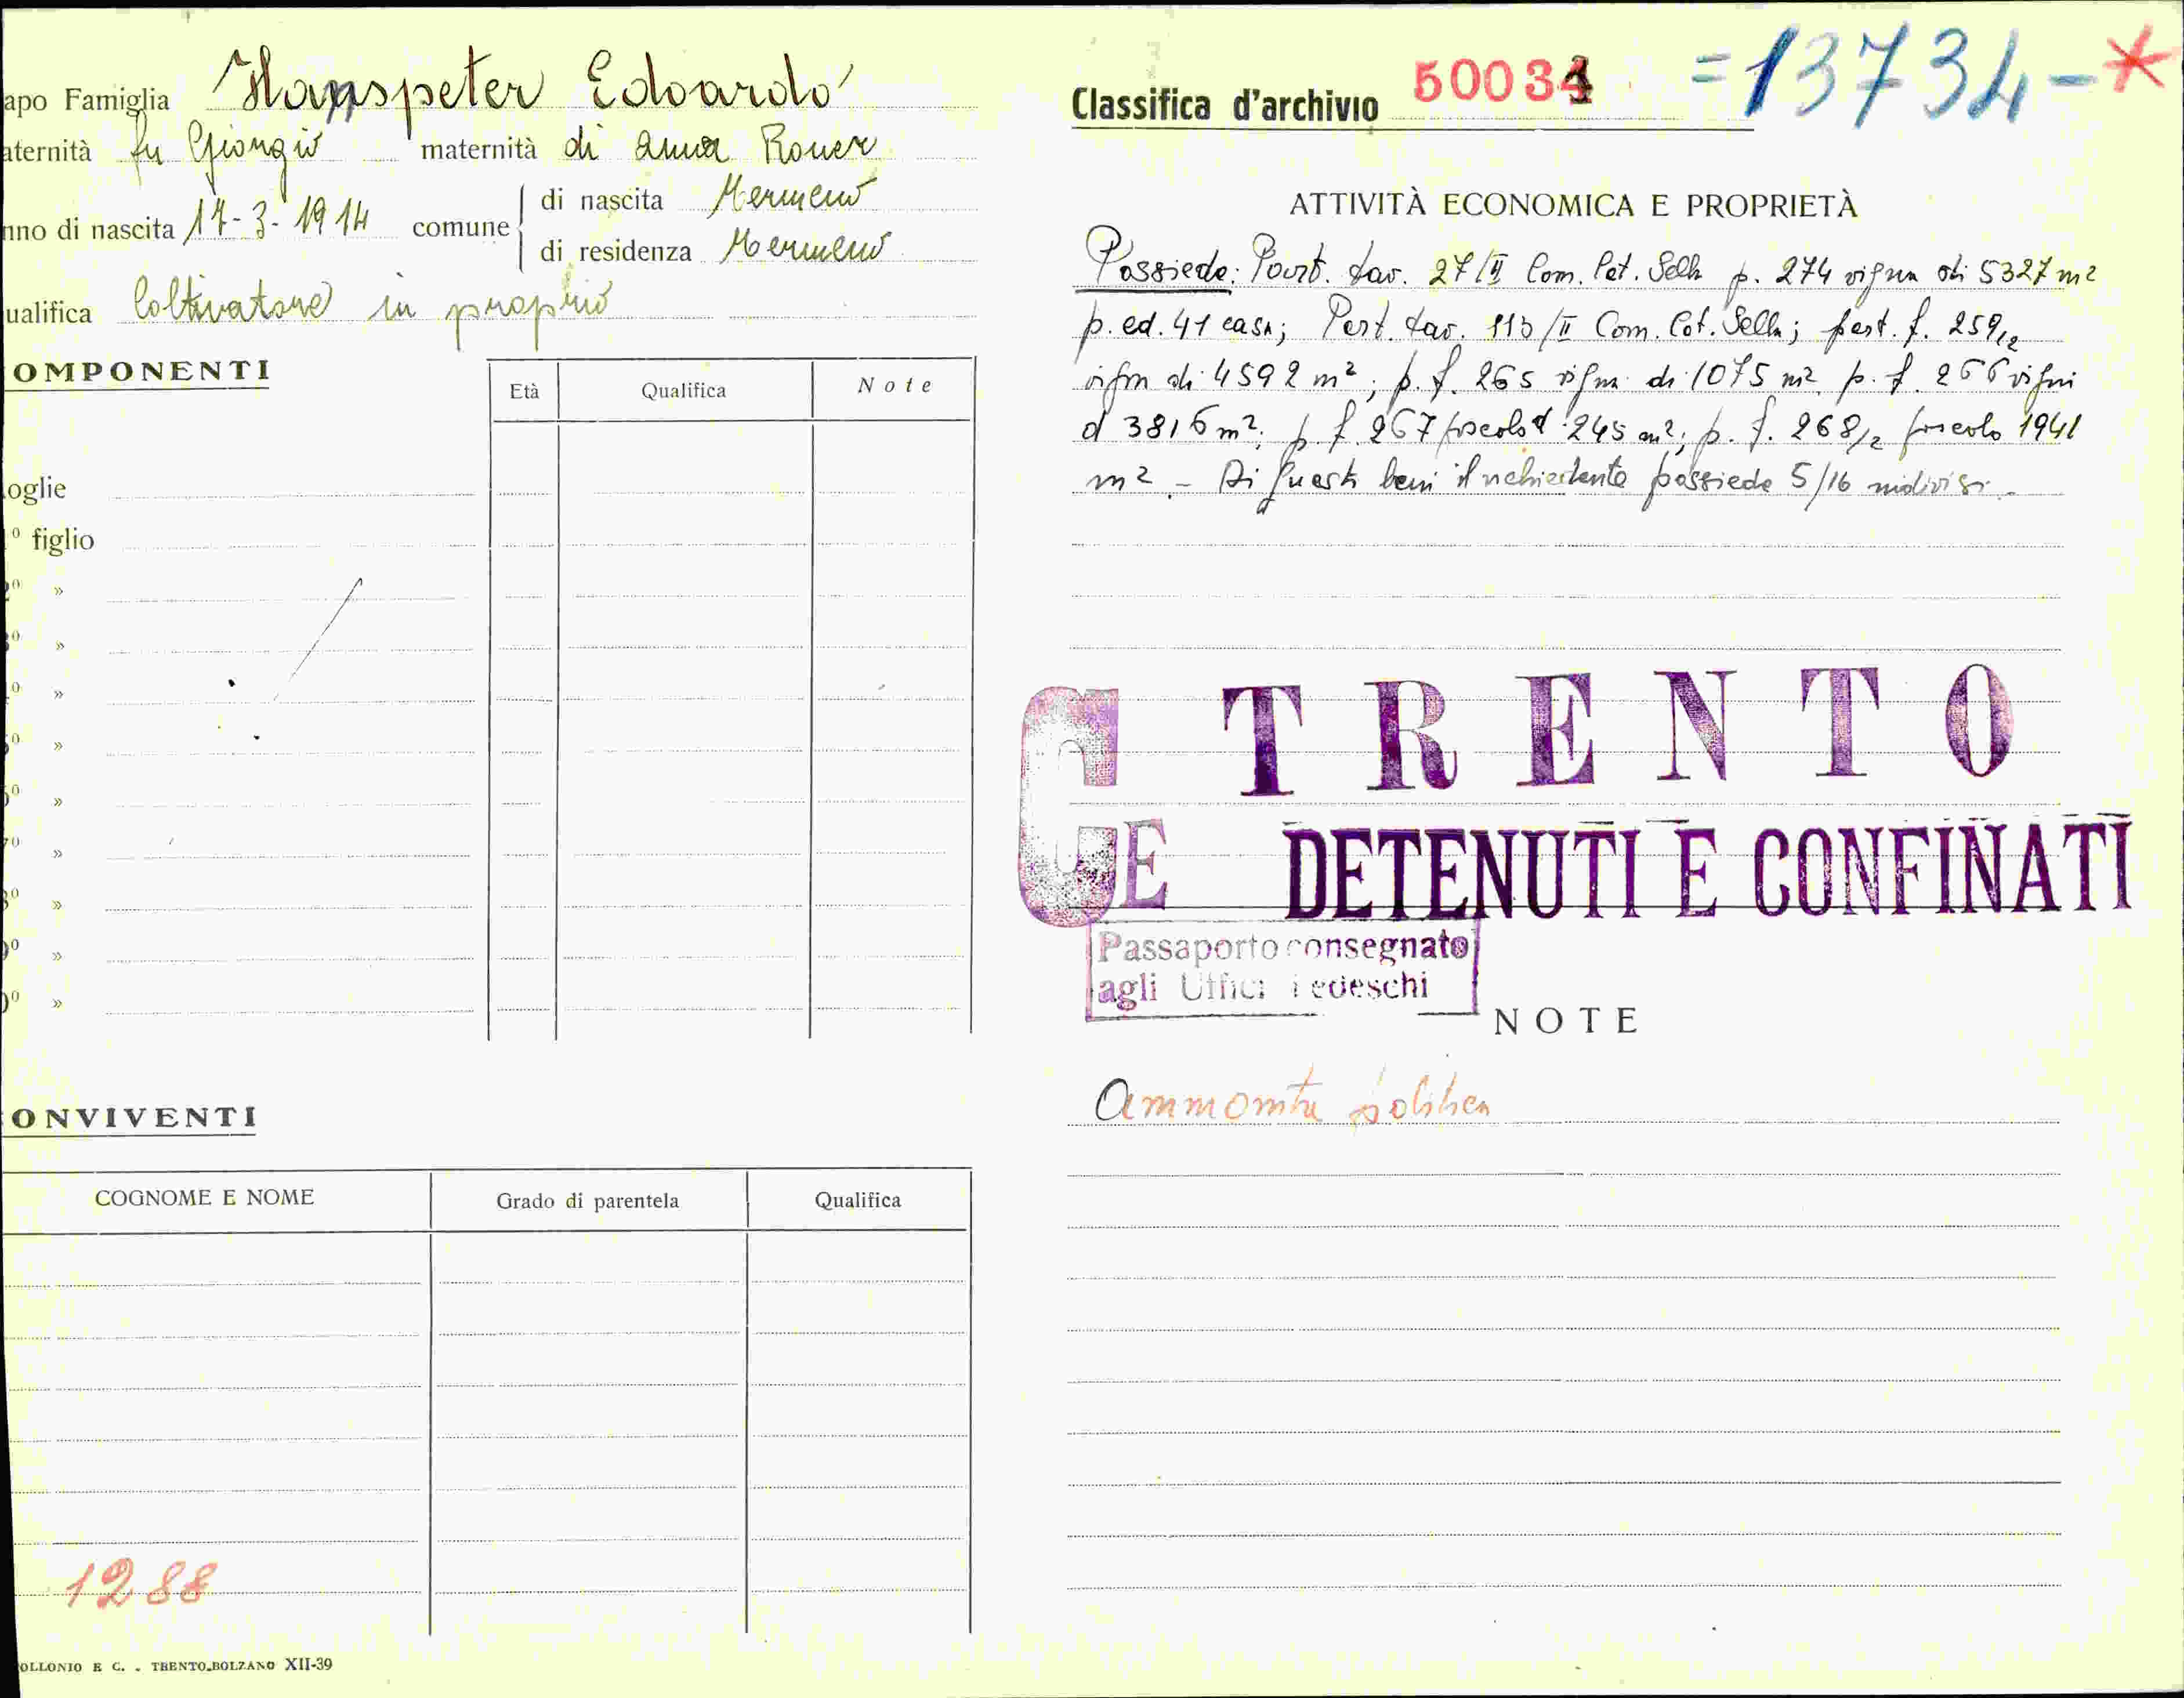 apo Famiglia Hanspeter Edoardo
aternità fu Giorgio maternità di Anna Roner
nno di nascita 17-3-1914 comune
di nascita Termeno
di residenza Termeno
ualifica Coltivatore in proprio
OMPONENTI
Età Qualifica Note
oglie
º figlio
»
»
»
»
»
»
»
»
»
ONVIVENTI
COGNOME E NOME Grado di parentela Qualifica
1288
OLLONIO E C. - TRENTO-BOLZANO XII-39
Classifica d'archivio 50034 =13734-*
ATTIVITÀ ECONOMICA E PROPRIETÀ
Possiede: Part. tav. 27/II Com. Cat. Sella p. 274 vigna di 5327 m2
p. ed. 41 casa; Part. tav. 113/II Com. Cat. Sella; part. f. 259/2
vigna di 4592 m2; p. f. 265 vigna di 1075 m2 p. f. 266 vigna
d 3816 m2; p. f. 267 pascolo d 245 m2; p. f. 268/2 pascolo 1941
m2 - Di questi beni il richiedente possiede 5/16 indivisi.-
G TRENTO
E DETENUTI E CONFINATI
Passaporto consegnato
agli Uffici Tedeschi
NOTE